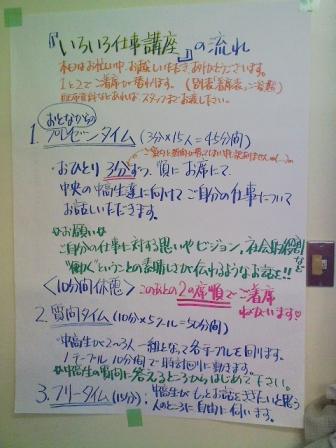 『いろいろ仕事講座』の流れ
本日はお忙しい中、お越しいただき、ありがとうございます。
1と2でご着席が替わります。(別表「着席表」ご参照)
配布資料などあれば、スタッフまでお渡しください。
おとなからの
1. プレゼンタイム (3分×15人=45分間)
・おひとり 3分ずつ、順にお席にて、
中央の中高生達に向けてご自分の仕事について
お話しいただきます。
☆お願い☆
ご自分の仕事に対する思いやビジョン、社会的役割など
"働く"ということの素晴しさが伝わるようなお話を!!
〈10分間休憩〉このあとの2の席順でご着席
ねがいます♡
2. 質問タイム (10分×5クール=50分間)
・中高生が2〜3人一組となって各テーブルを回ります。
1テーブル10分間で時計回りに動きます。
☆中高生の質問に答えるところからはじめて下さい。
3. フリータイム(15分); 中高生がもっとお話をききたいと思う
人のところに自由に伺います。